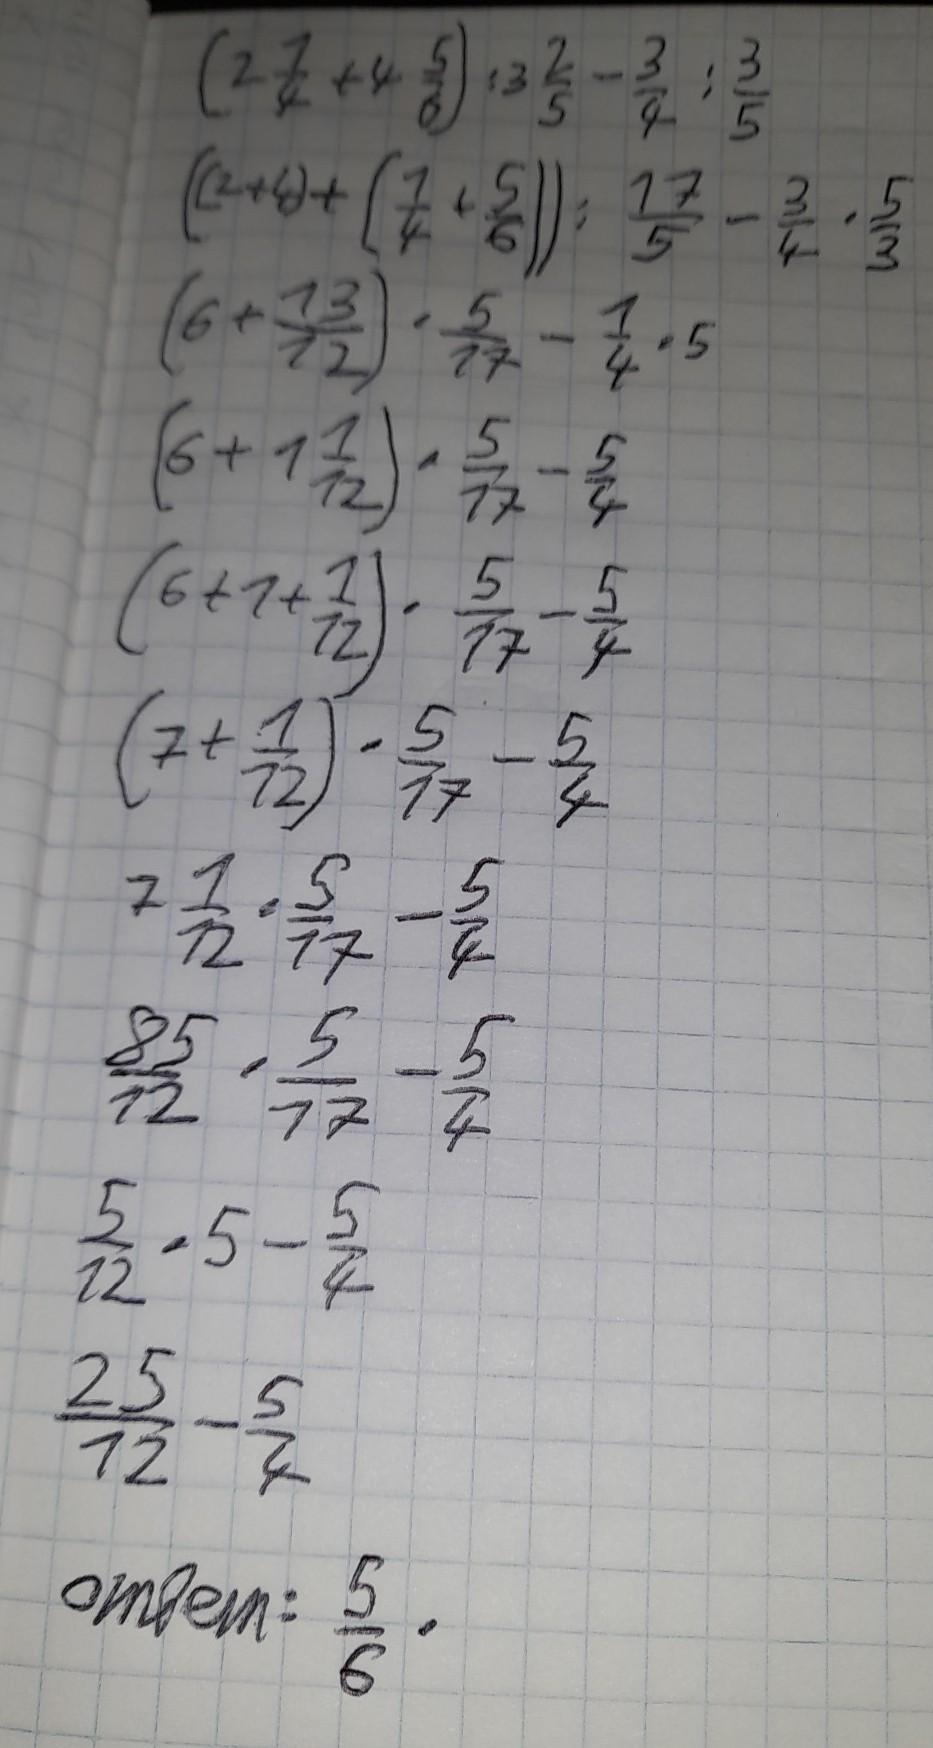 (2 1/4 + 4 5/6) : 3 2/5 - 3/4 : 3/5
((2+4) + (1/4 + 5/6)) : 17/5 - 3/4 · 5/3
(6 + 13/12) · 5/17 - 1/4 · 5
(6 + 1 1/12) · 5/17 - 5/4
(6 + 1 + 1/12) · 5/17 - 5/4
(7 + 1/12) · 5/17 - 5/4
7 1/12 · 5/17 - 5/4
85/12 · 5/17 - 5/4
5/12 · 5 - 5/4
25/12 - 5/4
ответ: 5/6 .